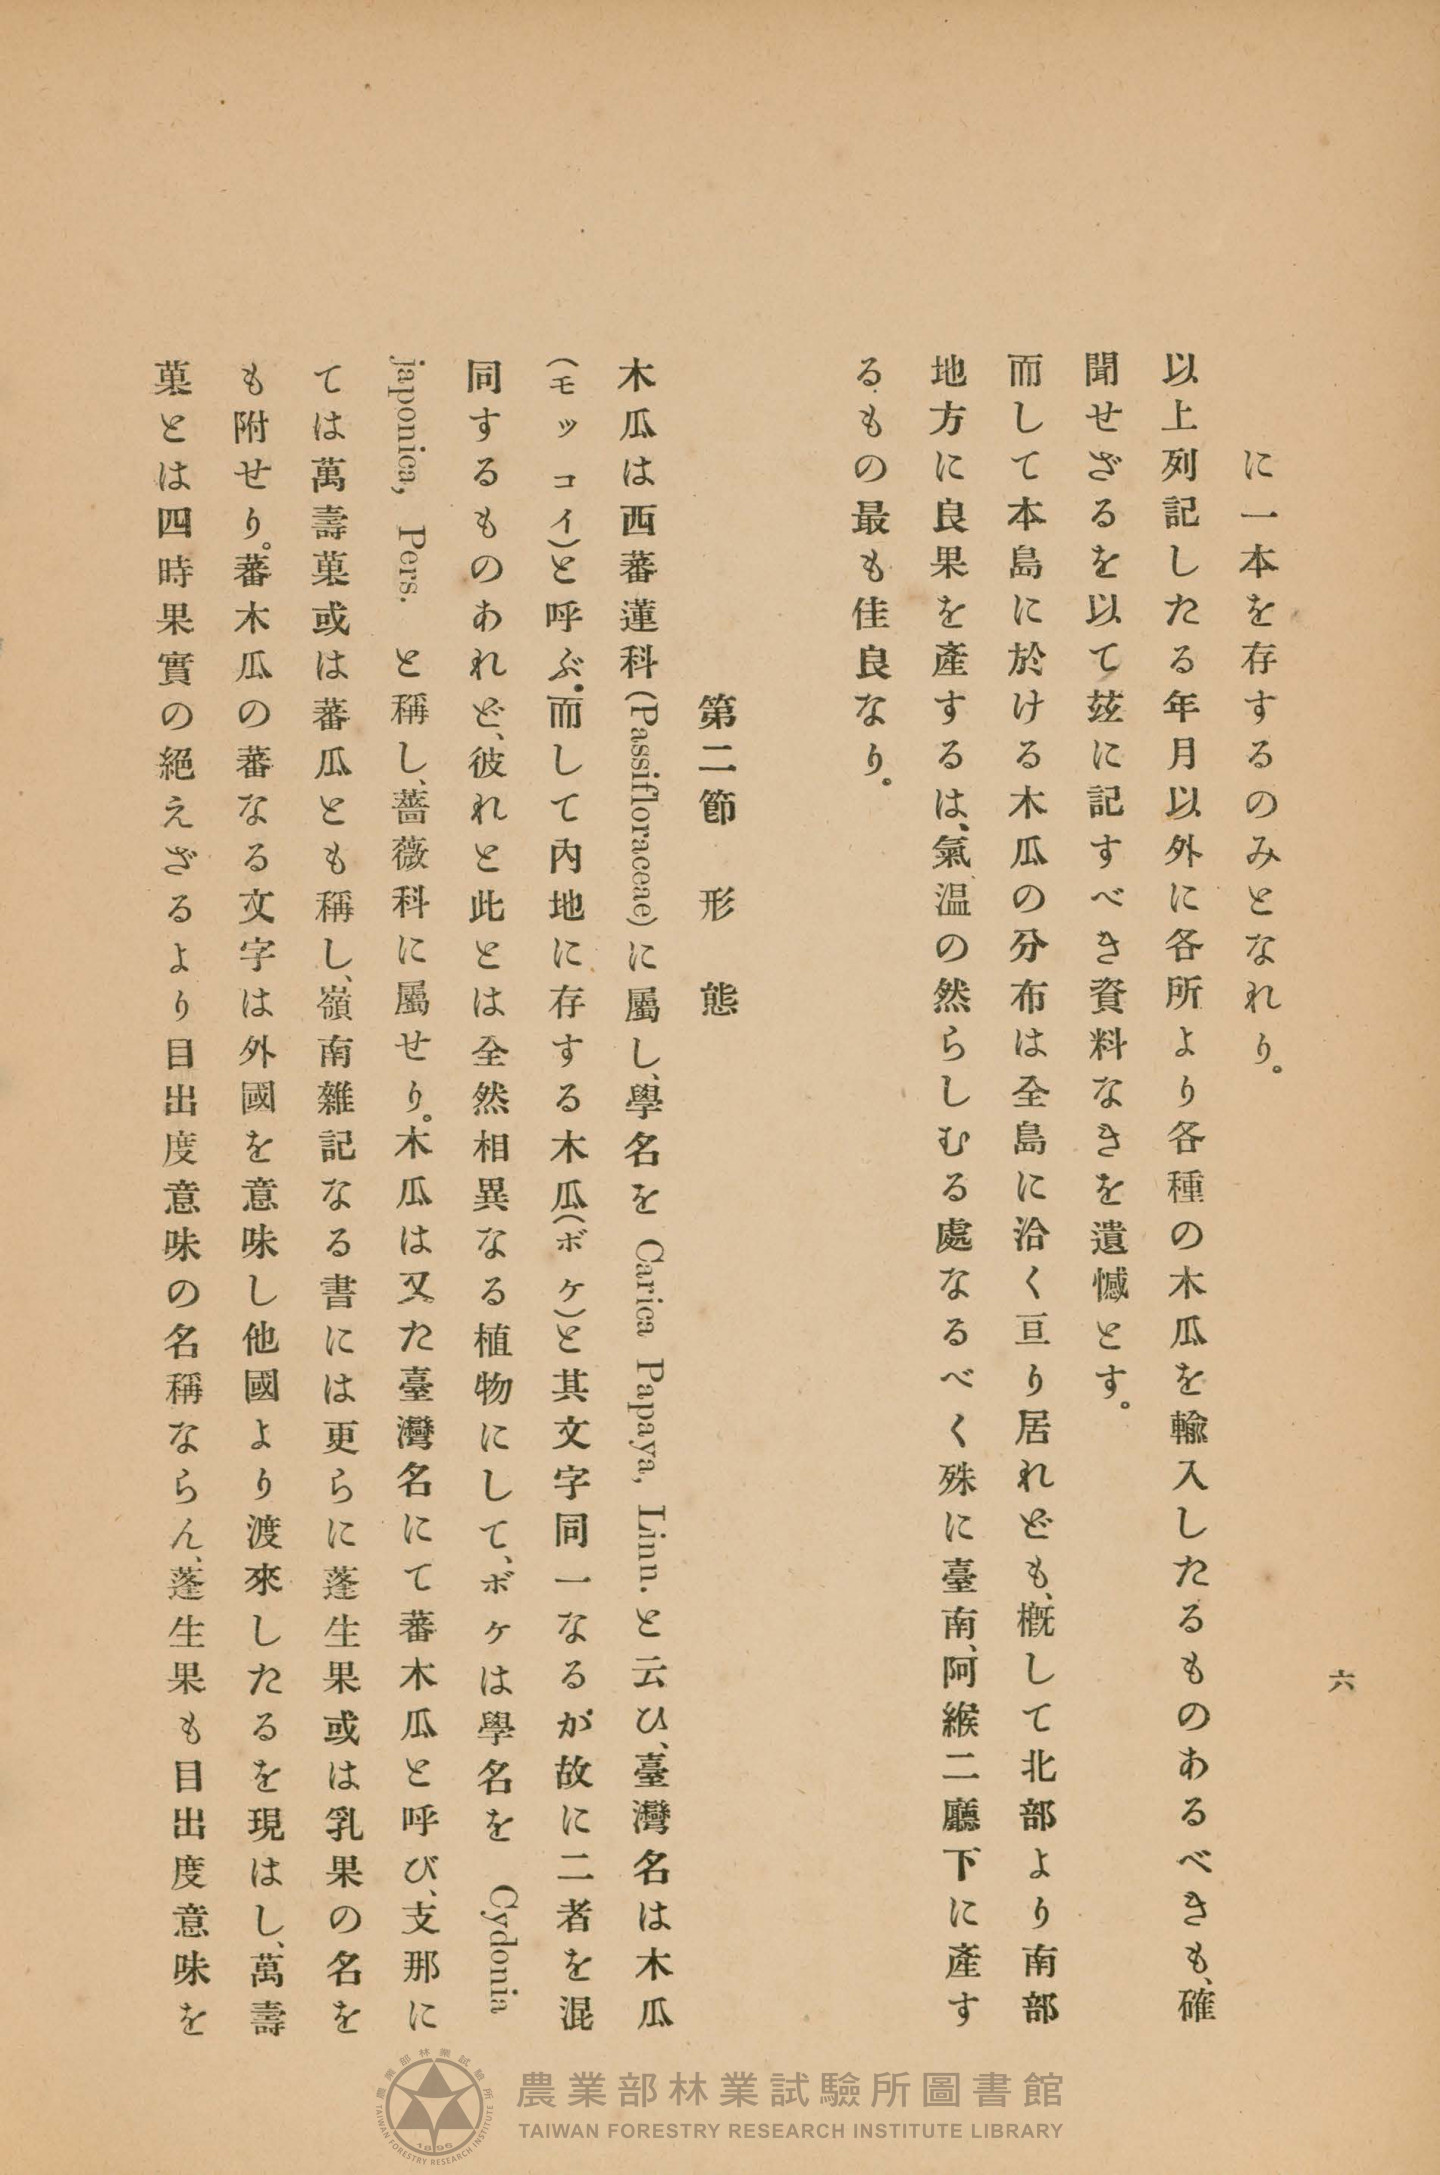 六
に一本を存するのみとなれり。
以上列記したる年月以外に各所より各種の木瓜を輸入したるものあるべきも、確
聞せざるを以て玆に記すべき資料なきを遺憾とす。
而して本島に於ける木瓜の分布は全島に洽く亘り居れども、概して北部より南部
地方に良果を產するは、氣温の然らしむる處なるべく殊に臺南、阿緱二廳下に產す
るもの最も佳良なり。
第二節 形 態
木瓜は西蕃蓮科(Passifloraceae)に屬し、學名を Carica Papaya, Linn. と云ひ、臺灣名は木瓜
(モッコイ)と呼ぶ。而して內地に存する木瓜(ボケ)と其文字同一なるが故に二者を混
同するものあれど、彼れと此とは全然相異なる植物にして、ボケは學名を Cydonia
japonica, Pers. と稱し、薔薇科に屬せり。木瓜は又た臺灣名にて蕃木瓜と呼び、支那に
ては萬壽菓或は蕃瓜とも稱し、嶺南雜記なる書には更らに蓬生果或は乳果の名を
も附せり。蕃木瓜の蕃なる文字は外國を意味し他國より渡來したるを現はし、萬壽
菓とは四時果實の絕えざるより目出度意味の名稱ならん、蓬生果も目出度意味を
農業部林業試驗所圖書館
TAIWAN FORESTRY RESEARCH INSTITUTE LIBRARY
農業部林業試驗所
TAIWAN FORESTRY RESEARCH INSTITUTE
1896